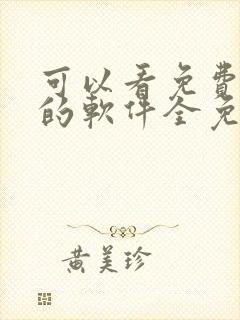 可以看免費
的軟件全免
黃美珍